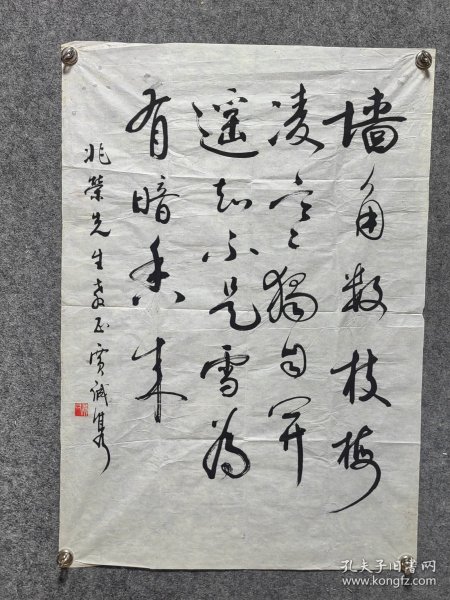 墙角数枝梅
凌寒獨自開
遥知不是雪為
有暗香来
兆榮先生教正
孔夫子旧书网
www.kongfz.com